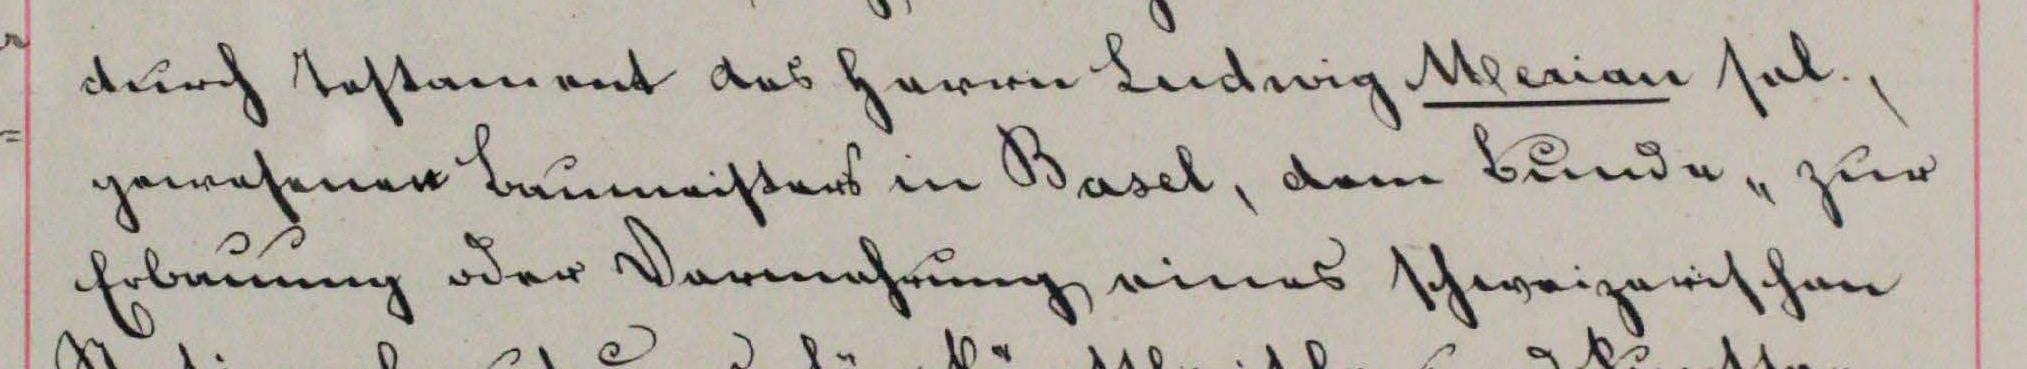 durch Testament des Herrn Ludwig Merian sel.,
gewesenen Baumeisters in Basel, dem Bunde „zur
Erbauung oder Vermehrung eines schweizerischen